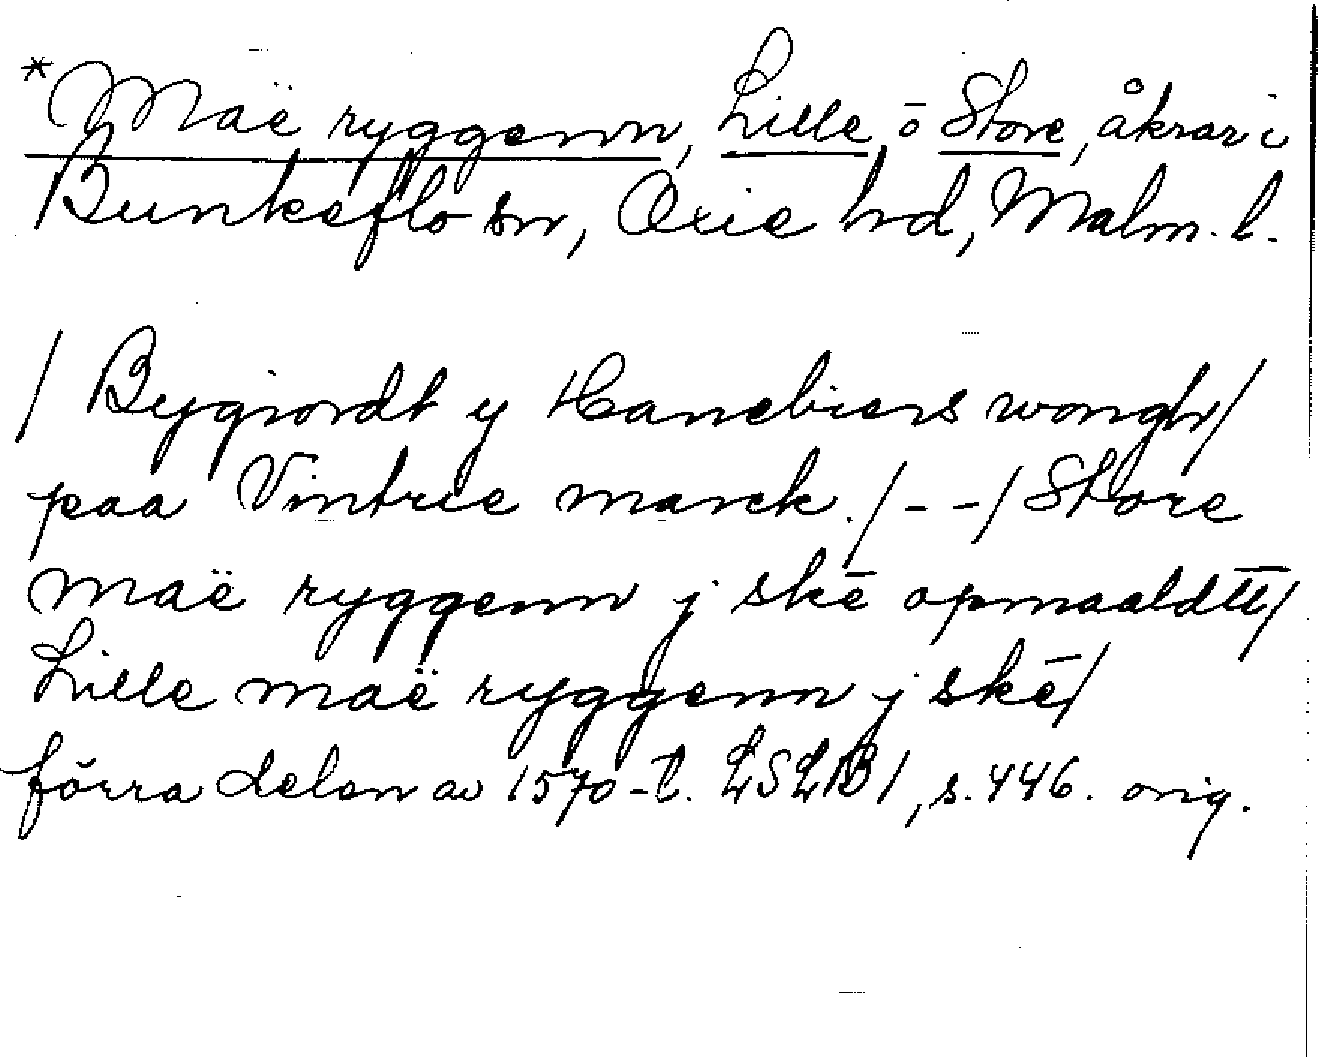 *Maë ryggenn, Lille ō Store, åkrar i
Bunkeflo sn, Oxie hd, Malm. l.
/ Bygiordt y Hanebiers wongh/
paa Vintrie marck. /--/ Store
maë ryggenn j skē opmaaldtt/
Lille maë ryggenn j skē/
förra delen av 1570-t. LSLB1, s. 446. orig.